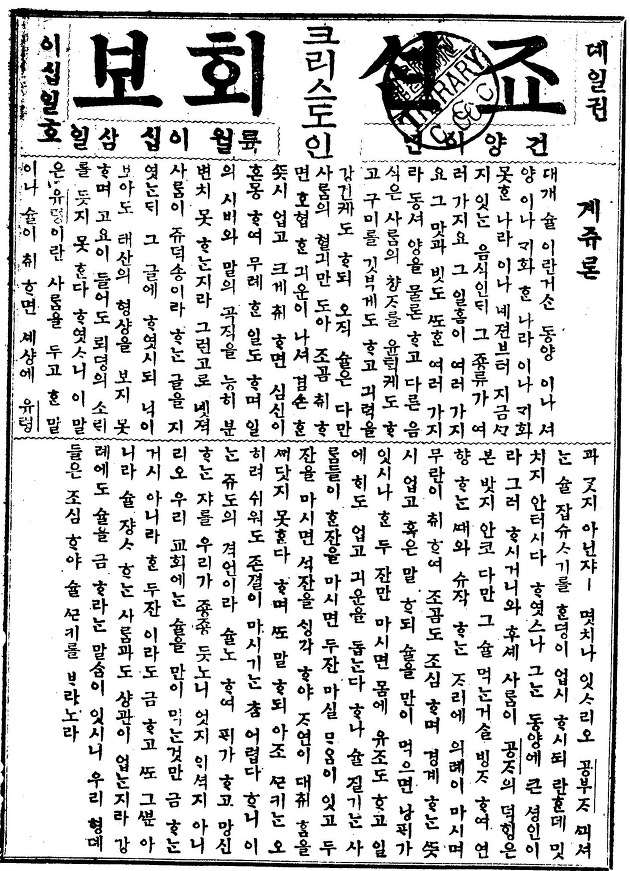 뎨일권
죠션
크리스도인
회보
이십일호
건양이년
륙월이십삼일
계쥬론
대개 술이란거슨 동양이나 셔
양이나 ᄀᆡ화ᄒᆞᆫ 나라이나 ᄀᆡ화
못ᄒᆞᆫ 나라이나 녜젼브터 지금ᄭᆞ
지 잇ᄂᆞᆫ 음식인ᄃᆡ 그 죵류가 여
러가지요 그 일홈이 여러가지
요 그 맛과 빗도 ᄯᅩᄒᆞᆫ 여러가지
라 동셔양을 물론ᄒᆞ고 다른 음
식은 사ᄅᆞᆷ의 챵ᄌᆞ를 유익케도 ᄒᆞ
고 구미를 깃부게도 ᄒᆞ고 긔력을
강건케도 ᄒᆞ되 오직 술은 다만
사ᄅᆞᆷ의 혈긔만 도아 조곰 ᄎᆔᄒᆞ
면 호협ᄒᆞᆫ 긔운이 나셔 겸손ᄒᆞᆫ
ᄯᅳᆺ시 업고 크게 ᄎᆔᄒᆞ면 심신이
혼몽ᄒᆞ여 무례ᄒᆞᆫ 일도 ᄒᆞ며 일
의 시비와 말의 곡직을 능히 분
변치 못ᄒᆞᄂᆞᆫ지라 그런고로 녯젹
사ᄅᆞᆷ이 쥬덕숑이라 ᄒᆞᄂᆞᆫ 글을 지
엿ᄂᆞᆫᄃᆡ 그 글에 ᄒᆞ엿시되 닉이
보아도 태산의 형샹을 보지 못
ᄒᆞ며 고요이 들어도 뢰뎡의 소ᄅᆡ
를 듯지 못ᄒᆞᆫ다 ᄒᆞ엿ᄉᆞ니 이 말
은 유령이란 사ᄅᆞᆷ을 두고 ᄒᆞᆫ 말
이나 술이 ᄎᆔᄒᆞ면 셰샹에 유령
과 ᄀᆞᆺ지 아닌쟈ㅣ 몃치나 잇스리오 공부ᄌᆞ ᄭᅴ셔
ᄂᆞᆫ 술 잡슈시기를 ᄒᆞᆫ뎡이 업시 ᄒᆞ시되 란ᄒᆞᆫ데 밋
치지 안터시다 ᄒᆞ엿스나 그ᄂᆞᆫ 동양에 큰 셩인이
라 그러ᄒᆞ시거니와 후셰 사ᄅᆞᆷ이 공ᄌᆞ의 덕ᄒᆡᆼ은
본밧지 안코 다만 그 술 먹ᄂᆞᆫ거슬 빙ᄌᆞᄒᆞ여 연
향ᄒᆞᄂᆞᆫ ᄯᅢ와 슈쟉ᄒᆞᄂᆞᆫ ᄌᆞ리에 의례이 마시며
무란이 ᄎᆔᄒᆞ여 조곰도 조심ᄒᆞ며 경계ᄒᆞᄂᆞᆫ ᄯᅳᆺ
시 업고 혹은 말ᄒᆞ되 술을 만이 먹으면 낭패가
잇시나 ᄒᆞᆫ두잔만 마시면 몸에 유조도 ᄒᆞ고 일
에 ᄒᆡ도 업고 긔운을 돕ᄂᆞᆫ다 ᄒᆞ나 술 즐기ᄂᆞᆫ 사
ᄅᆞᆷ들이 ᄒᆞᆫ잔을 마시면 두잔 마실 ᄆᆞᄋᆞᆷ이 잇고 두
잔을 마시면 석잔을 ᄉᆡᆼ각ᄒᆞ야 ᄌᆞ연이 대ᄎᆔᄒᆞᆷ을
ᄭᅢᄃᆞᆺ지 못ᄒᆞᆫ다 ᄒᆞ며 ᄯᅩ 말ᄒᆞ되 아조 ᄭᅳᆫ키ᄂᆞᆫ 오
히려 쉬워도 존졀이 마시기ᄂᆞᆫ ᄎᆞᆷ 어렵다 ᄒᆞ니 이
ᄂᆞᆫ 쥬도의 격언이라 술노 ᄒᆞ여 패가ᄒᆞ고 망신
ᄒᆞᄂᆞᆫ 쟈를 우리가 죵죵 듯노니 엇지 익셕지 아니
리오 우리 교회에ᄂᆞᆫ 술을 만이 먹ᄂᆞᆫ것만 금ᄒᆞᄂᆞᆫ
거시 아니라 ᄒᆞᆫ두잔이라도 금ᄒᆞ고 ᄯᅩ 그ᄲᅮᆫ 아
니라 술 쟝ᄉᆞᄒᆞᄂᆞᆫ 사ᄅᆞᆷ과도 샹관이 업ᄂᆞᆫ지라 강
례에도 술을 금ᄒᆞ라ᄂᆞᆫ 말ᄉᆞᆷ이 잇시니 우리 형뎨
들은 조심ᄒᆞ야 술 ᄭᅳᆫ키를 ᄇᆞ라노라
LIBRARY